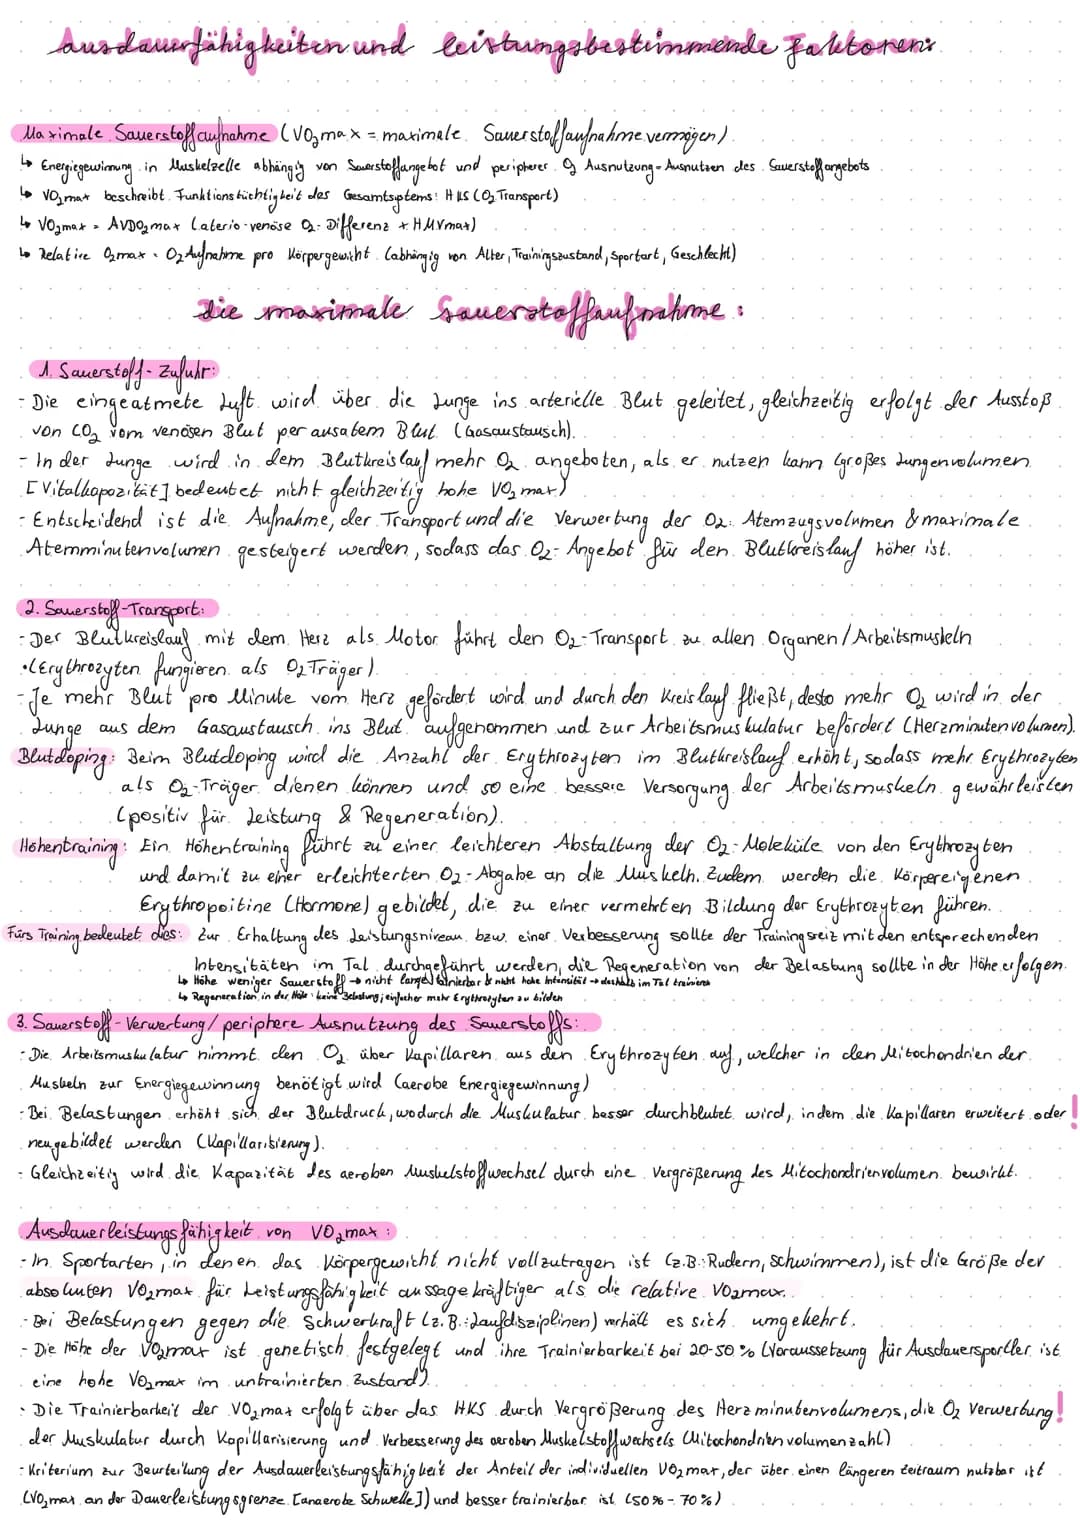 ausdauerfähigkeiten und leistungsbestimmende Faktoren:
Maximale Sauerstoffaufnahme (VO₂max = maximale Sauerstoffaufnahmevermögen)
↳ Energiegewinnung in Muskelzelle abhängig von Sauerstoffangebot und peripherer O₂ Ausnutzung = Ausnutzen des Sauerstoffangebots
↳ VO₂max beschreibt Funktionstüchtigkeit des Gesamtsystems: HKS (O₂ Transport)
↳ VO₂max = AVDO₂max (aterio-venöse O₂-Differenz x HMVmax)
↳ Relative O₂max = O₂ Aufnahme pro Körpergewicht (abhängig von Alter, Trainingszustand, Sportart, Geschlecht)
die maximale Sauerstoffaufnahme:
1. Sauerstoff-Zufuhr:
- Die eingeatmete Luft wird über die Lunge ins arterielle Blut geleitet, gleichzeitig erfolgt der Ausstoß
von CO₂ vom venösen Blut per ausatem Blut (Gasaustausch).
- In der Lunge wird in dem Blutkreislauf mehr O₂ angeboten, als er nutzen kann (großes Lungenvolumen
[Vitalkapazität] bedeutet nicht gleichzeitig hohe VO₂max)
- Entscheidend ist die Aufnahme, der Transport und die Verwertung der O₂: Atemzugsvolumen & maximale
Atemminutenvolumen gesteigert werden, sodass das O₂-Angebot für den Blutkreislauf höher ist.
2. Sauerstoff-Transport:
- Der Blutkreislauf mit dem Herz als Motor führt den O₂-Transport zu allen Organen/Arbeitsmuskeln
• (Erythrozyten fungieren als O₂ Träger)
- Je mehr Blut pro Minute vom Herz gefördert wird und durch den Kreislauf fließt, desto mehr O₂ wird in der
Lunge aus dem Gasaustausch ins Blut aufgenommen und zur Arbeitsmuskulatur befördert (Herzminutenvolumen).
Blutdoping: Beim Blutdoping wird die Anzahl der Erythrozyten im Blutkreislauf erhöht, sodass mehr Erythrozyten
als O₂-Träger dienen können und so eine bessere Versorgung der Arbeitsmuskeln gewährleisten
(positiv für Leistung & Regeneration).
Höhentraining: Ein Höhentraining führt zu einer leichteren Abstaltung der O₂-Moleküle von den Erythrozyten
und damit zu einer erleichterten O₂-Abgabe an die Muskeln. Zudem werden die Körpereigenen
Erythropoitine (Hormone) gebildet, die zu einer vermehrten Bildung der Erythrozyten führen.
Fürs Training bedeutet dies: Zur Erhaltung des Leistungsniveau bzw. einer Verbesserung sollte der Trainingsreiz mit den entsprechenden
Intensitäten im Tal durchgeführt werden, die Regeneration von der Belastung sollte in der Höhe erfolgen.
↳ Höhe weniger Sauerstoff → nicht lange trainierbar & nicht hohe Intensität → deshalb im Tal trainieren
↳ Regeneration in der Höhe: keine Belastung; einfacher mehr Erythrozyten zu bilden
3. Sauerstoff-Verwertung/periphere Ausnutzung des Sauerstoffs:
- Die Arbeitsmuskulatur nimmt den O₂ über Kapillaren aus den Erythrozyten auf, welcher in den Mitochondrien der
Muskeln zur Energiegewinnung benötigt wird (aerobe Energiegewinnung)
- Bei Belastungen erhöht sich der Blutdruck, wodurch die Muskulatur besser durchblutet wird, indem die Kapillaren erweitert oder !
neugebildet werden (Kapillarisierung).
- Gleichzeitig wird die Kapazität des aeroben Muskelstoffwechsel durch eine Vergrößerung des Mitochondrienvolumen bewirkt.
Ausdauerleistungsfähigkeit von VO₂max:
- In Sportarten, in denen das Körpergewicht nicht voll zutragen ist (z.B.: Rudern, Schwimmen), ist die Größe der
absoluten VO₂max für Leistungsfähigkeit aussagekräftiger als die relative VO₂max.
- Bei Belastungen gegen die Schwerkraft (z.B.: Laufdisziplinen) verhält es sich umgekehrt.
- Die Höhe der VO₂max ist genetisch festgelegt und ihre Trainierbarkeit bei 20-50% (Voraussetzung für Ausdauersportler ist
eine hohe VO₂max im untrainierten Zustand).
- Die Trainierbarkeit der VO₂max erfolgt über das HKS durch Vergrößerung des Herzminutenvolumens, die O₂ Verwertung !
der Muskulatur durch Kapillarisierung und Verbesserung des aeroben Muskelstoffwechsels (Mitochondrienvolumenzahl)
- Kriterium zur Beurteilung der Ausdauerleistungsfähigkeit der Anteil der individuellen VO₂max, der über einen längeren Zeitraum nutzbar ist
(VO₂max an der Dauerleistungsgrenze [anaerobe Schwelle]) und besser trainierbar ist (50% - 70%)